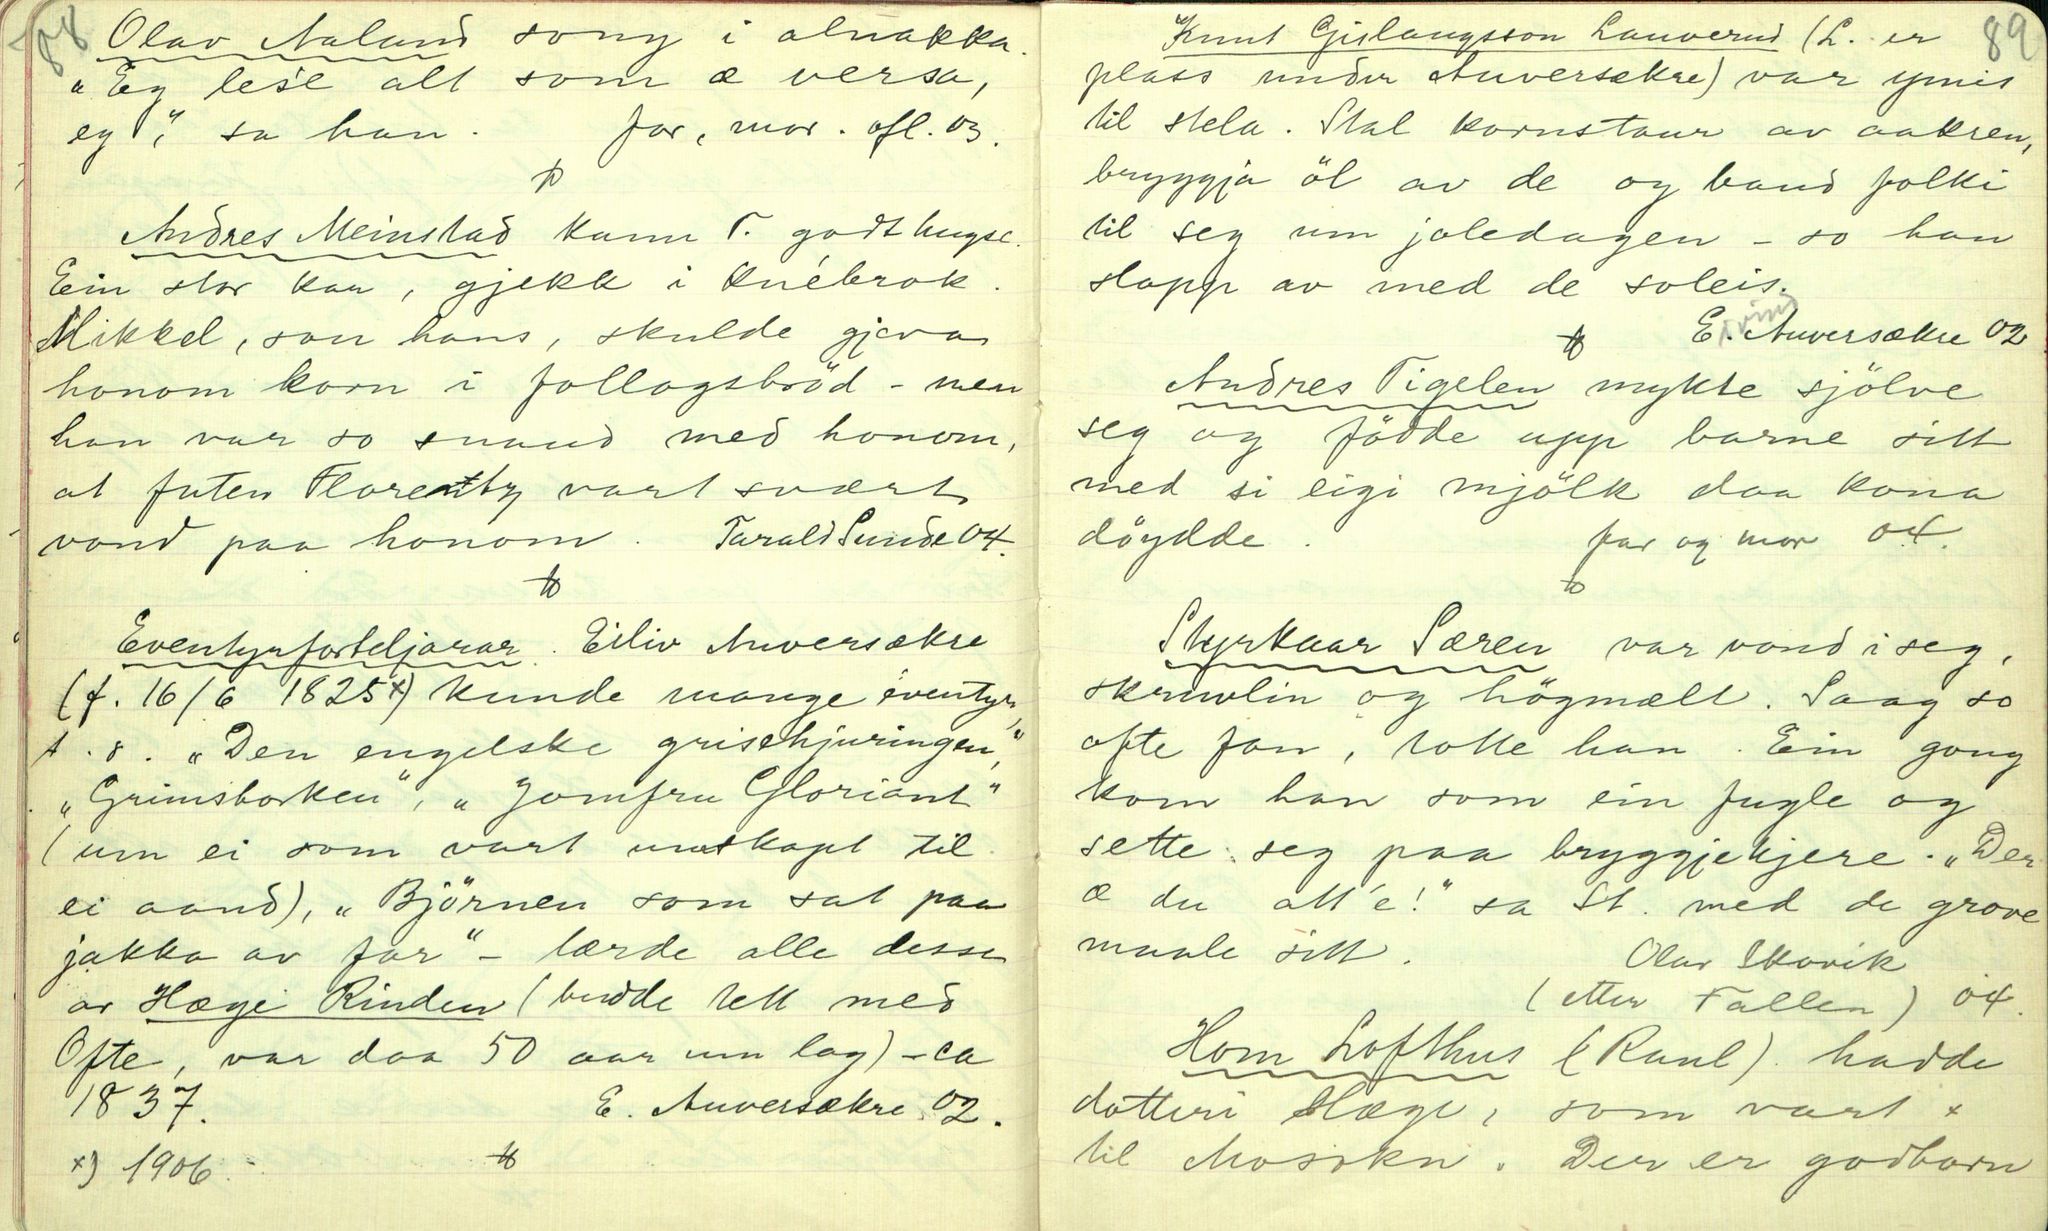 88
Olav Aaland song i alnakka.
"Eg les'e alt som æ versa,
eg", sa han. far, mor. ofl. 03.
Andres Meinstad kann T. godt hugse.
Ein stor kar, gjekk i knébrok.
Mikkel, son hans, skulde gjeva
honom korn i follogsbröd - men
han var so snaud med honom,
at futen Florentz vart svært
vond paa honom. Tarald Sunde 04.
Eventyrforteljarar. Eiliv Anversækre
(f. 16/6 1825x) kunde mange eventyr,
t. s. "Den engelske grisehjuringen",
"Grimsborken", "Jomfru Gloriant"
(um ei som vart umskapt til
ei aand), "Björnen som sat paa
jakka av far" - lærde alle desse
av Hægi Rinden (budde tett med
Ofte, var daa 50 aar um lag) - ca
1837. E. Anversækre 02.
x) 1906.
89
Knut Gislaugsson Lauverud (L. er
plass under Anversækre) var ymis
til stela. Stal kornstaur av aakren,
bryggja öl av de og baud folki
til seg um joledagen - so han
slapp av med de soleis.
Eivind Anversækre 02
Andres Tigelen mykte sjölve
seg og födde upp barne sitt
med si eigi mjölk daa kona
döydde. far og mor 04.
Styrkaar Særen var vond i seg,
skruvlin og högmælt. Saag so
ofte fan, totte han. Ein gong
kom han som ein fugle og
sette seg paa bryggjekjere. "Der
æ du att'e!" sa St. med de grove
maale sitt. Olav Skovik
(etter Fallen) 04.
Hom Lofthus (Raul) hadde
dotteri Hæge, som vart x
til Mosokn. Der er godbarn